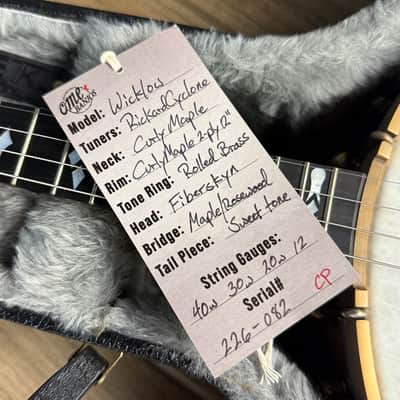 OME
BANJOS
Model: Wicklow
Tuners: Rickard Cyclone
Neck: Curly Maple
Rim: Curly Maple 2-ply 12"
Tone Ring: Rolled Brass
Head: Fiberskyn
Bridge: Maple/Rosewood
Tail Piece: Sweet tone
String Gauges:
40w 30w 20w 12
Serial#
226-082 CP